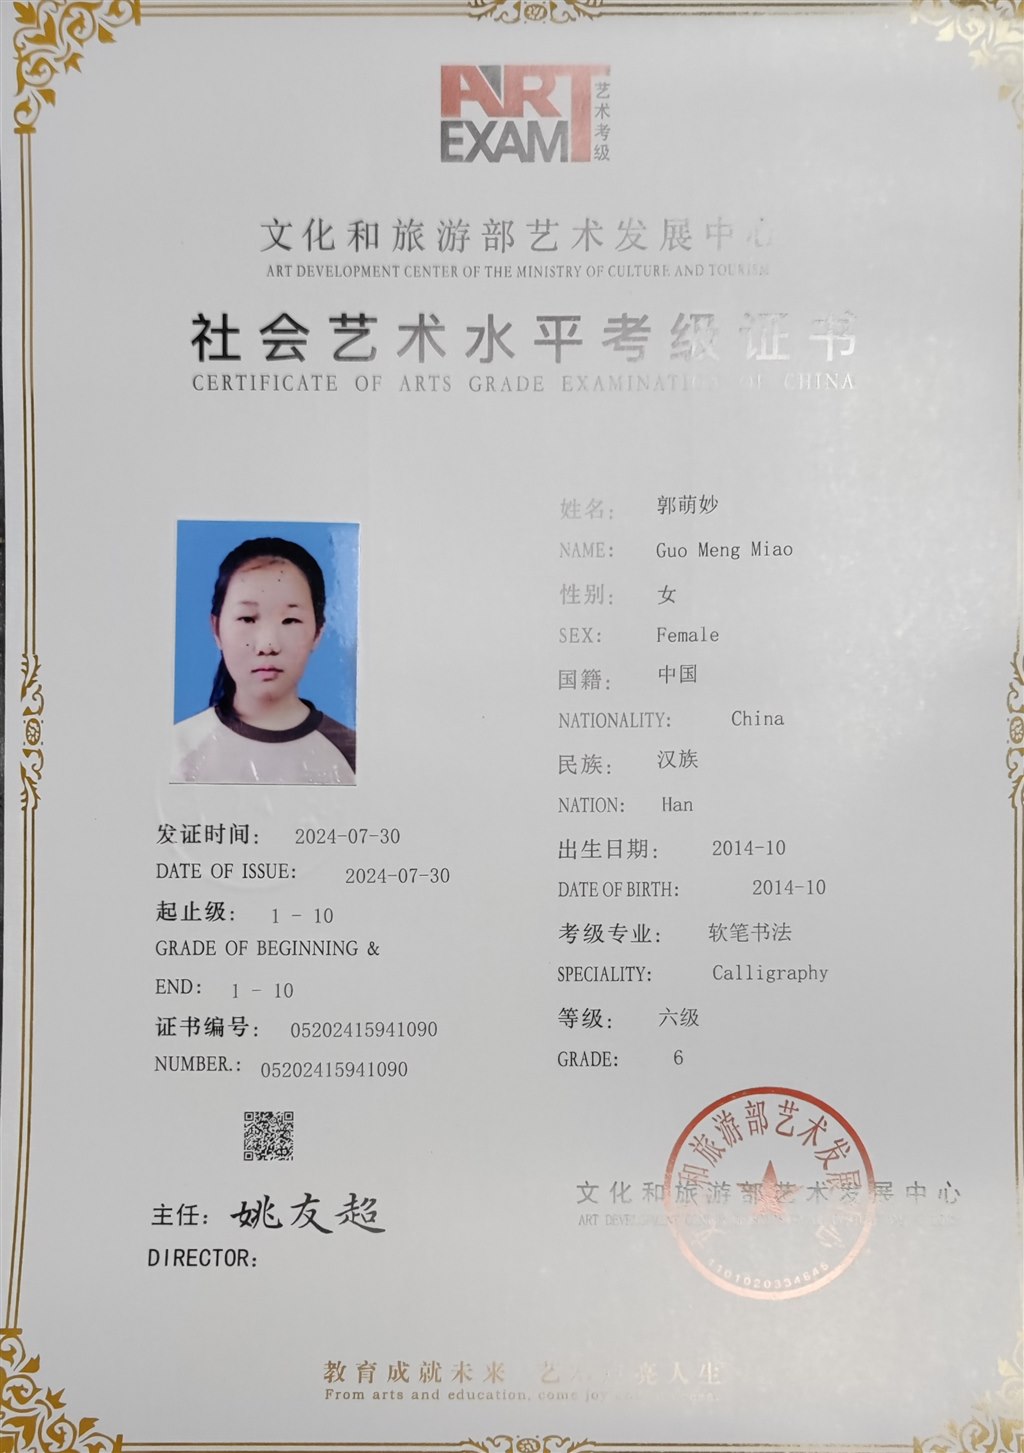 ART
EXAM
艺术考级
文化和旅游部艺术发展中心
ART DEVELOPMENT CENTER OF THE MINISTRY OF CULTURE AND TOURISM
社会艺术水平考级证书
CERTIFICATE OF ARTS GRADE EXAMINATION OF CHINA
姓名： 郭萌妙
NAME: Guo Meng Miao
性别： 女
SEX: Female
国籍： 中国
NATIONALITY: China
民族： 汉族
NATION: Han
出生日期： 2014-10
DATE OF BIRTH: 2014-10
考级专业： 软笔书法
SPECIALITY: Calligraphy
等级： 六级
GRADE: 6
发证时间： 2024-07-30
DATE OF ISSUE: 2024-07-30
起止级： 1 - 10
GRADE OF BEGINNING &
END: 1 - 10
证书编号： 05202415941090
NUMBER.: 05202415941090
主任： 姚友超
DIRECTOR:
文化和旅游部艺术发展中心
ART DEVELOPMENT
和旅游部艺术发展
1101020334645
教育成就未来 艺 亮人生
From arts and education, come joy